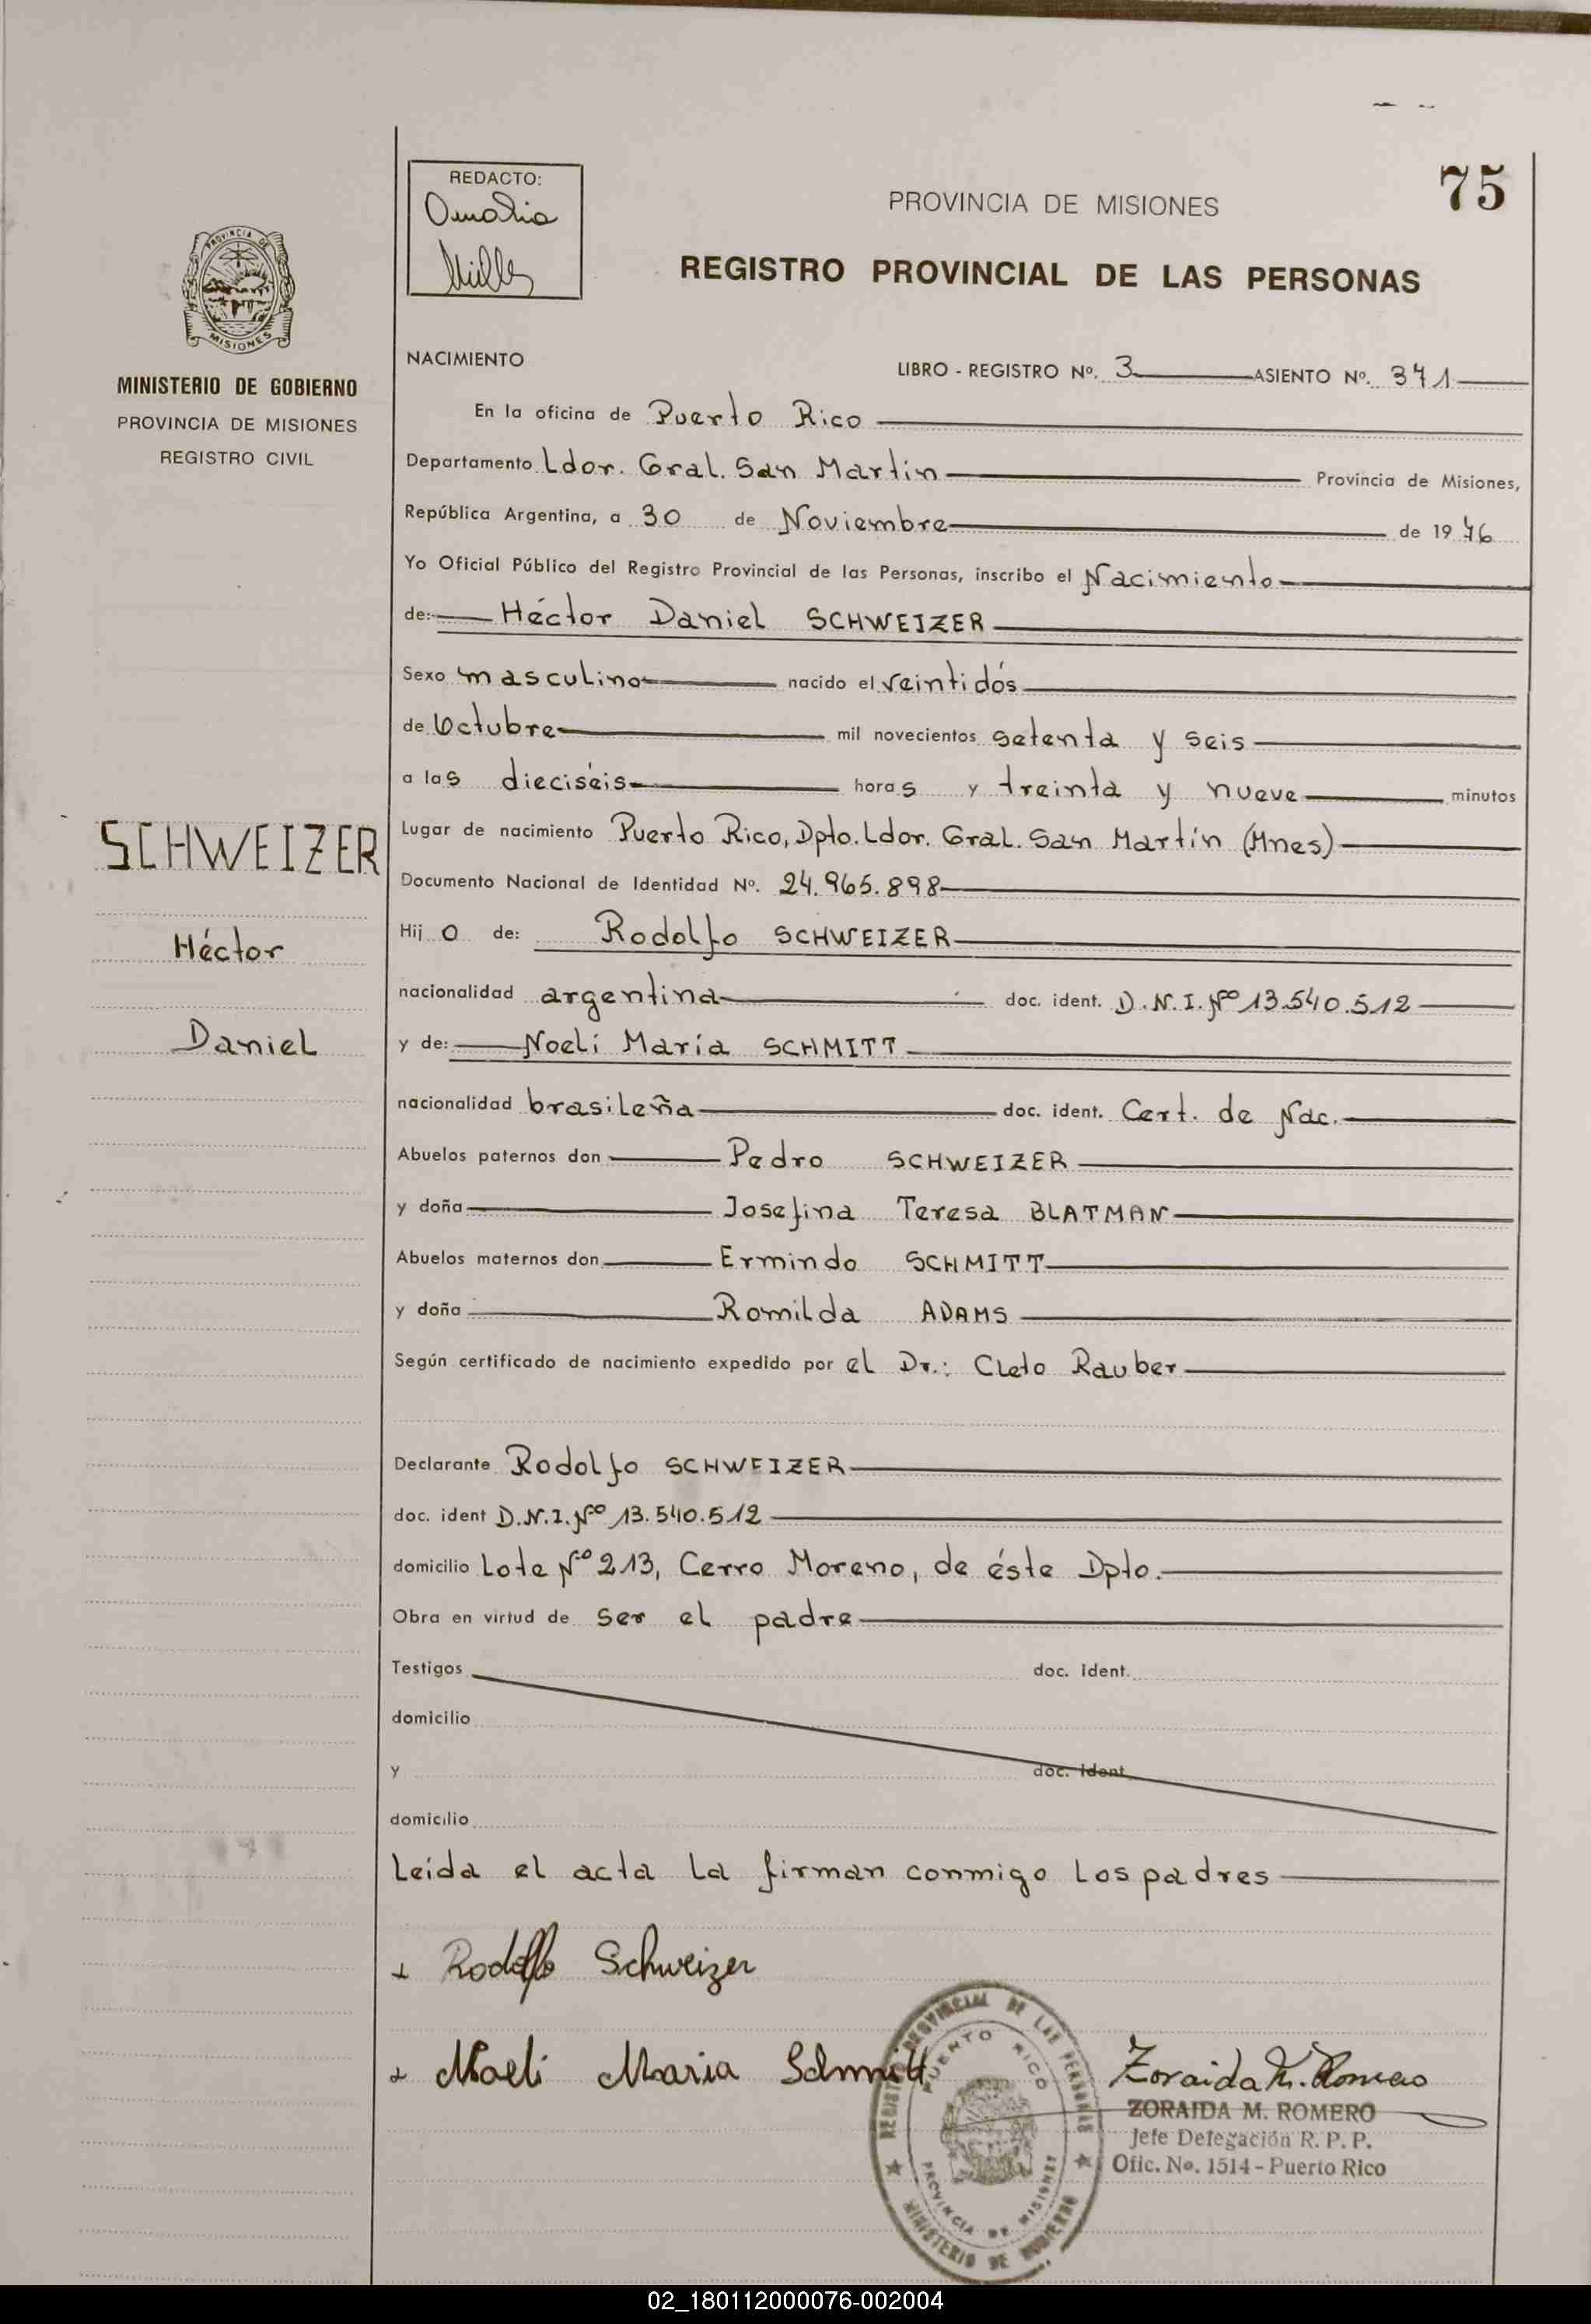 75
REDACTO:
PROVINCIA DE MISIONES
REGISTRO PROVINCIAL DE LAS PERSONAS
PROVINCIA DE
MISIONES
MINISTERIO DE GOBIERNO
PROVINCIA DE MISIONES
REGISTRO CIVIL
SCHWEIZER
Héctor
Daniel
NACIMIENTO LIBRO - REGISTRO Nº. 3 ASIENTO Nº. 371
En la oficina de Puerto Rico
Departamento Ldor. Gral. San Martín Provincia de Misiones,
República Argentina, a 30 de Noviembre de 1976
Yo Oficial Público del Registro Provincial de las Personas, inscribo el Nacimiento
de: Héctor Daniel SCHWEIZER
Sexo masculino nacido el veintidós
de Octubre mil novecientos setenta y seis
a las dieciséis horas y treinta y nueve minutos
Lugar de nacimiento Puerto Rico, Dpto. Ldor. Gral. San Martín (Mnes)
Documento Nacional de Identidad Nº. 24.965.898
Hijo de: Rodolfo SCHWEIZER
nacionalidad argentina doc. ident. D.N.I. Nº 13.540.512
y de: Noelí María SCHMITT
nacionalidad brasileña doc. ident. Cert. de Nac.
Abuelos paternos don Pedro SCHWEIZER
y doña Josefina Teresa BLATMAN
Abuelos maternos don Ermindo SCHMITT
y doña Romilda ADAMS
Según certificado de nacimiento expedido por el Dr.: Cleto Rauber
Declarante Rodolfo SCHWEIZER
doc. ident D.N.I. Nº 13.540.512
domicilio Lote Nº 213, Cerro Moreno, de éste Dpto.
Obra en virtud de ser el padre
Testigos doc. ident.
domicilio
y doc. ident.
domicilio
Leída el acta la firman conmigo los padres
Rodolfo Schweizer
Noeli Maria Schmitt
Zoraida M. Romero
ZORAIDA M. ROMERO
Jefe Delegación R. P. P.
Ofic. No. 1514 - Puerto Rico
REGISTRO PROVINCIAL DE LAS PERSONAS
PUERTO RICO
PROVINCIA DE MISIONES
MINISTERIO DE GOBIERNO
02_180112000076-002004